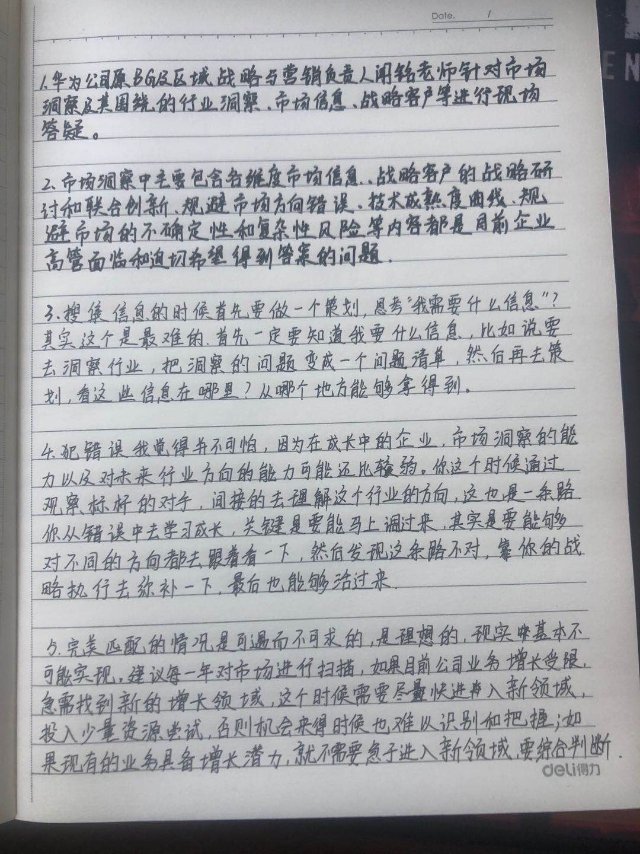 Date. /
1.华为公司原BG及区域战略与营销负责人闲铭老师针对市场
洞察及其围绕的行业洞察、市场信息、战略客户等进行现场
答疑。
2.市场洞察中主要包含各维度市场信息、战略客户的战略研
讨和联合创新、规避市场方向错误、技术成熟度曲线、规
避市场的不确定性和复杂性风险等内容都是目前企业
高管面临和迫切希望得到答案的问题.
3.搜集信息的时候首先要做一个策划,思考"我需要什么信息"?
其实这个是最难的.首先一定要知道我要什么信息,比如说要
去洞察行业,把洞察的问题变成一个问题清单,然后再去策
划,看这些信息在哪里?从哪个地方能够拿得到。
4.犯错误我觉得并不可怕,因为在成长中的企业,市场洞察的能
力以及对未来行业方向的能力可能还比较弱。你这个时候通过
观察标杆的对手,间接的去理解这个行业的方向,这也是一条路
你从错误中去学习成长,关键是要能马上调过来,其实是要能够
对不同的方向都去跟着看一下,然后发现这条路不对,靠你的战
略执行去弥补一下,最后也能够活过来.
5.完美匹配的情况是可遇而不可求的,是理想的,现实中基本不
可能实现。建议每一年对市场进行扫描,如果目前公司业务增长受限,
急需找到新的增长领域,这个时候需要尽量快进入新领域,
投入少量资源尝试,否则机会来得时候也难以识别和把握;如
果现有的业务具备增长潜力,就不需要急于进入新领域,要综合判断.
deli得力
EN